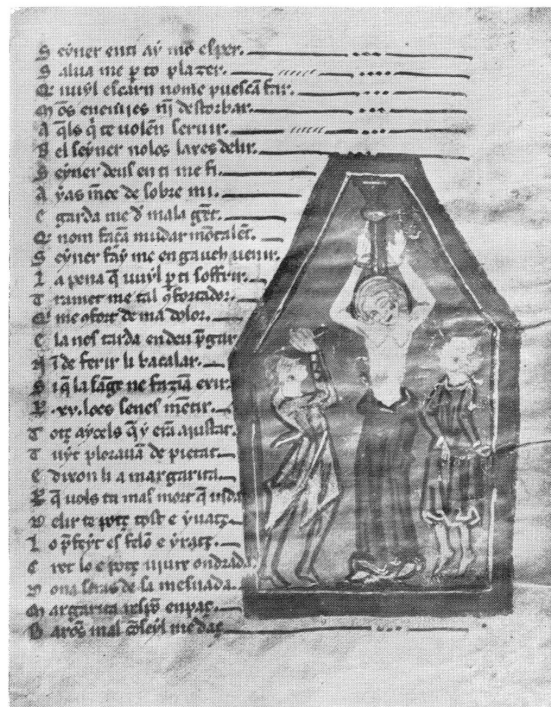 S eyner en ti ay mō esper.
S alua me p to plazer.
Q uuyl escarn nome puescā fīr.
M os enemjes nj destorbar.
A q̄ls q̄ te uolen seruir.
B el seyner nolos laxes delir.
S eyner deus en ti me fi.
A yas mēce de sobre mi.
E garda me d mala gēt.
Q nom faça mudar mō talēt.
S eyner fay me en gauch uenir.
L a pena q̄ uuyl p ti soffrir.
T ramet me tal ɔfortador.
Q me ɔfort de ma dolor.
E la nes tarda en deu pgar.
de ferir li bacalar.
S i q̄ la sāgt ne fazia exir.
.xv. locs senes mētir.
T otz aycels q̄ y erā aiustar.
T uyt plorauā de pietat.
E dixon li a margarita.
q̄ uols tu mal morir q̄ uida
elir te potz tost e yuatz
L o pfeyt es felo e yratz.
C re lo e potz uiure ondrada.
D ona seras de la mesnada.
M argarita respos en paz.
B aros mal ɔseyl me datz